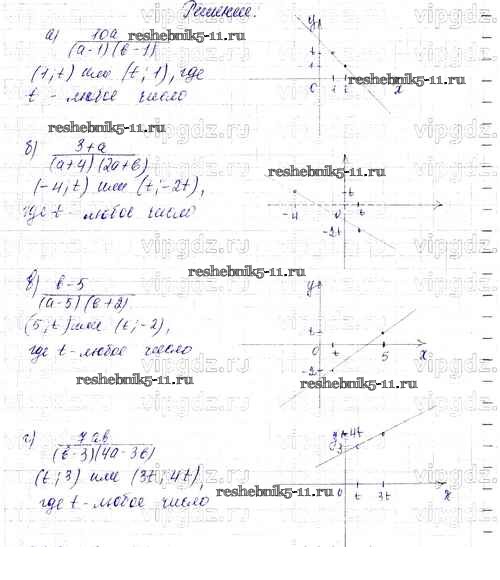 Решение:
а) 10a / (a-1)(b-1)
(1; t) или (t; 1), где
t - любое число
y
1
0
1
x
б) 3+a / (a+4)(2a+b)
(-4; t) или (t; -2t),
где t - любое число
t
-4
t
-2t
в) b-5 / (a-5)(b+2)
(5; t) или (t; -2),
где t - любое число
y
t
0
t
5
x
-2
г) 7ab / (b-3)(4a-3b)
(t; 3) или (3t; 4t),
где t - любое число
4t
3
0
t
3t
x
reshebnik5-11.ru
reshebnik5-11.ru
reshebnik5-11.ru
reshebnik5-11.ru
reshebnik5-11.ru
reshebnik5-11.ru
reshebnik5-11.ru
reshebnik5-11.ru
vipgdz.ru